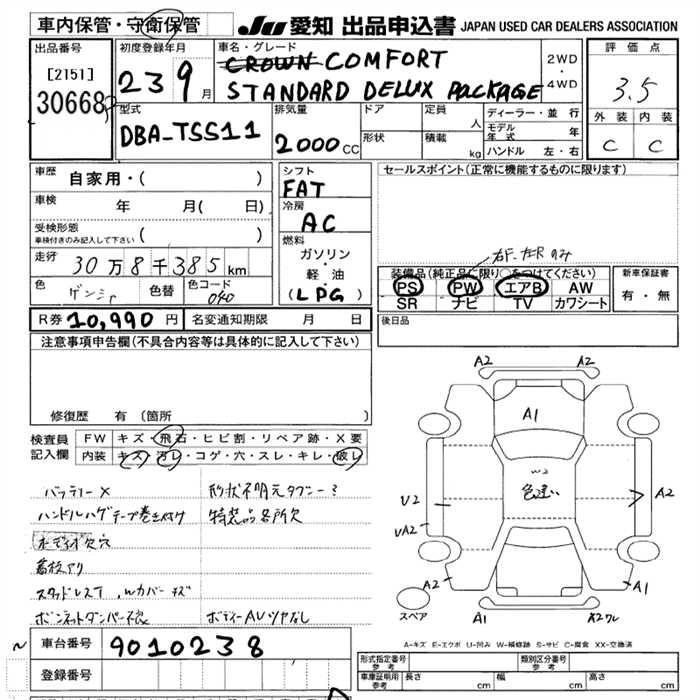 車内保管・守衛保管
JU 愛知 出品申込書 JAPAN USED CAR DEALERS ASSOCIATION
出品番号
[2151]
30668
初度登録年月
23 9月
車名・グレード
CROWN COMFORT
STANDARD DELUX PACKAGE
2WD
・
4WD
評価点
3.5
外装 内装
C C
型式
DBA-TSS11
排気量
2000CC
ドア
形状
定員
人
積載
kg
ディーラー・並行
モデル年式 年
ハンドル 左・右
車歴
自家用・( )
車検
年 月( 日)
受検形態
車検付きのみ記入して下さい ( )
走行
30万8千385km
色
ゲンショク
色替
色コード
040
シフト
FAT
冷房
AC
燃料
ガソリン
・
軽油
(LPG)
セールスポイント(正常に機能するものに限ります)
右F.左R のみ
装備品(純正品に限り○をつけてください)
PS PW エアB AW
SR ナビ TV カワシート
新車保証書
有・無
R券 10,990円
名変通知期限 月 日
後日品
注意事項申告欄(不具合内容等は具体的に記入して下さい)
修復歴 有(箇所
検査員記入欄
FW キズ・飛石・ヒビ割・リペア跡・X要
内装 キズ・汚レ・コゲ・穴・スレ・キレ・破レ
バッテリーX
ハンドルハゲテープ巻き付け
オーディオ欠穴
看板アリ
スタッドレスT.Wカバーキズ
ボンネットダンパー不良
形状不明元タクシー?
特装品各所欠
ボディーAUツヤなし
A2 A2
A1
W2
色違い
U2
UA2
A2
A2
A1
A1
A2ワレ
スペア
A-キズ E-エクボ U-凹み W-補修跡 S-サビ C-腐食 XX-交換済
車台番号
9010238
登録番号
形式指定番号
参考
類別区分番号
参考
車庫証明用
参考
長さ cm
幅 cm
高さ cm